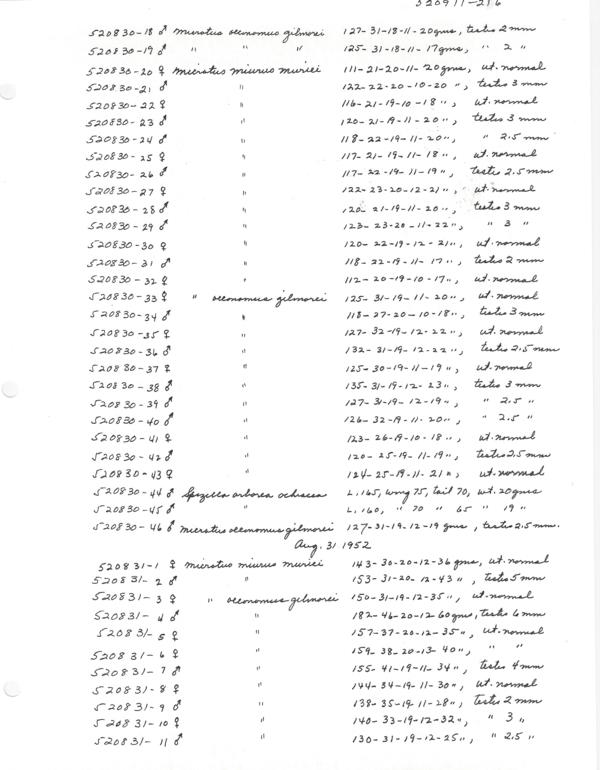 520911-216
520830-18 ♂ Microtus oeconomus gilmorei 127-31-18-11-20gms, testes 2 mm
520830-19 ♂ " " " 125-31-18-11-17gms, " 2 "
520830-20 ♀ Microtus miurus muriei 111-21-20-11-20gms, ut. normal
520830-21 ♂ " 122-22-20-10-20 ", testes 3 mm
520830-22 ♀ " 116-21-19-10-18 ", ut. normal
520830-23 ♂ " 120-21-19-11-20 ", testes 3 mm
520830-24 ♂ " 118-22-19-11-20 ", " 2.5 mm
520830-25 ♀ " 117-21-19-11-18 ", ut. normal
520830-26 ♂ " 117-22-19-11-19 ", testes 2.5 mm
520830-27 ♀ " 122-23-20-12-21 ", ut. normal
520830-28 ♂ " 120-21-19-11-20 ", testes 3 mm
520830-29 ♂ " 123-23-20-11-22 ", " 3 "
520830-30 ♀ " 120-22-19-12-21 ", ut. normal
520830-31 ♂ " 118-22-19-11-17 ", testes 2 mm
520830-32 ♀ " 112-20-19-10-17 ", ut. normal
520830-33 ♀ " oeconomus gilmorei 125-31-19-11-20 ", ut. normal
520830-34 ♂ " 118-27-20-10-18 ", testes 3 mm
520830-35 ♀ " 127-32-19-12-22 ", ut. normal
520830-36 ♂ " 132-31-19-12-22 ", testes 2.5 mm
520830-37 ♀ " 125-30-19-11-19 ", ut. normal
520830-38 ♂ " 135-31-19-12-23 ", testes 3 mm
520830-39 ♂ " 127-31-19-12-19 ", " 2.5 "
520830-40 ♂ " 126-32-19-11-20 ", " 2.5 "
520830-41 ♀ " 123-26-19-10-18 ", ut. normal
520830-42 ♂ " 120-25-19-11-19 ", testes 2.5 mm
520830-43 ♀ " 124-25-19-11-21 ", ut. normal
520830-44 ♂ Spizella arborea ochracea L. 165, wing 75, tail 70, wt. 20gms
520830-45 ♂ " L. 160, " 70 " 65 " 19 "
520830-46 ♂ Microtus oeconomus gilmorei 127-31-19-12-19 gms, testes 2.5 mm.
Aug. 31 1952
520831-1 ♀ Microtus miurus muriei 143-30-20-12-36 gms, ut. normal
520831-2 ♂ " 153-31-20-12-43 ", testes 5 mm
520831-3 ♀ " oeconomus gilmorei 150-31-19-12-35 ", ut. normal
520831-4 ♂ " 182-46-20-12-60gms, testes 6 mm
520831-5 ♀ " 157-37-20-12-35 ", ut. normal
520831-6 ♀ " 159-38-20-13-40 ", " "
520831-7 ♂ " 155-41-19-11-34 ", testes 4 mm
520831-8 ♀ " 144-34-19-11-30 ", ut. normal
520831-9 ♂ " 138-35-19-11-28 ", testes 2 mm
520831-10 ♀ " 140-33-19-12-32 ", " 3 "
520831-11 ♂ " 130-31-19-12-25 ", " 2.5 "